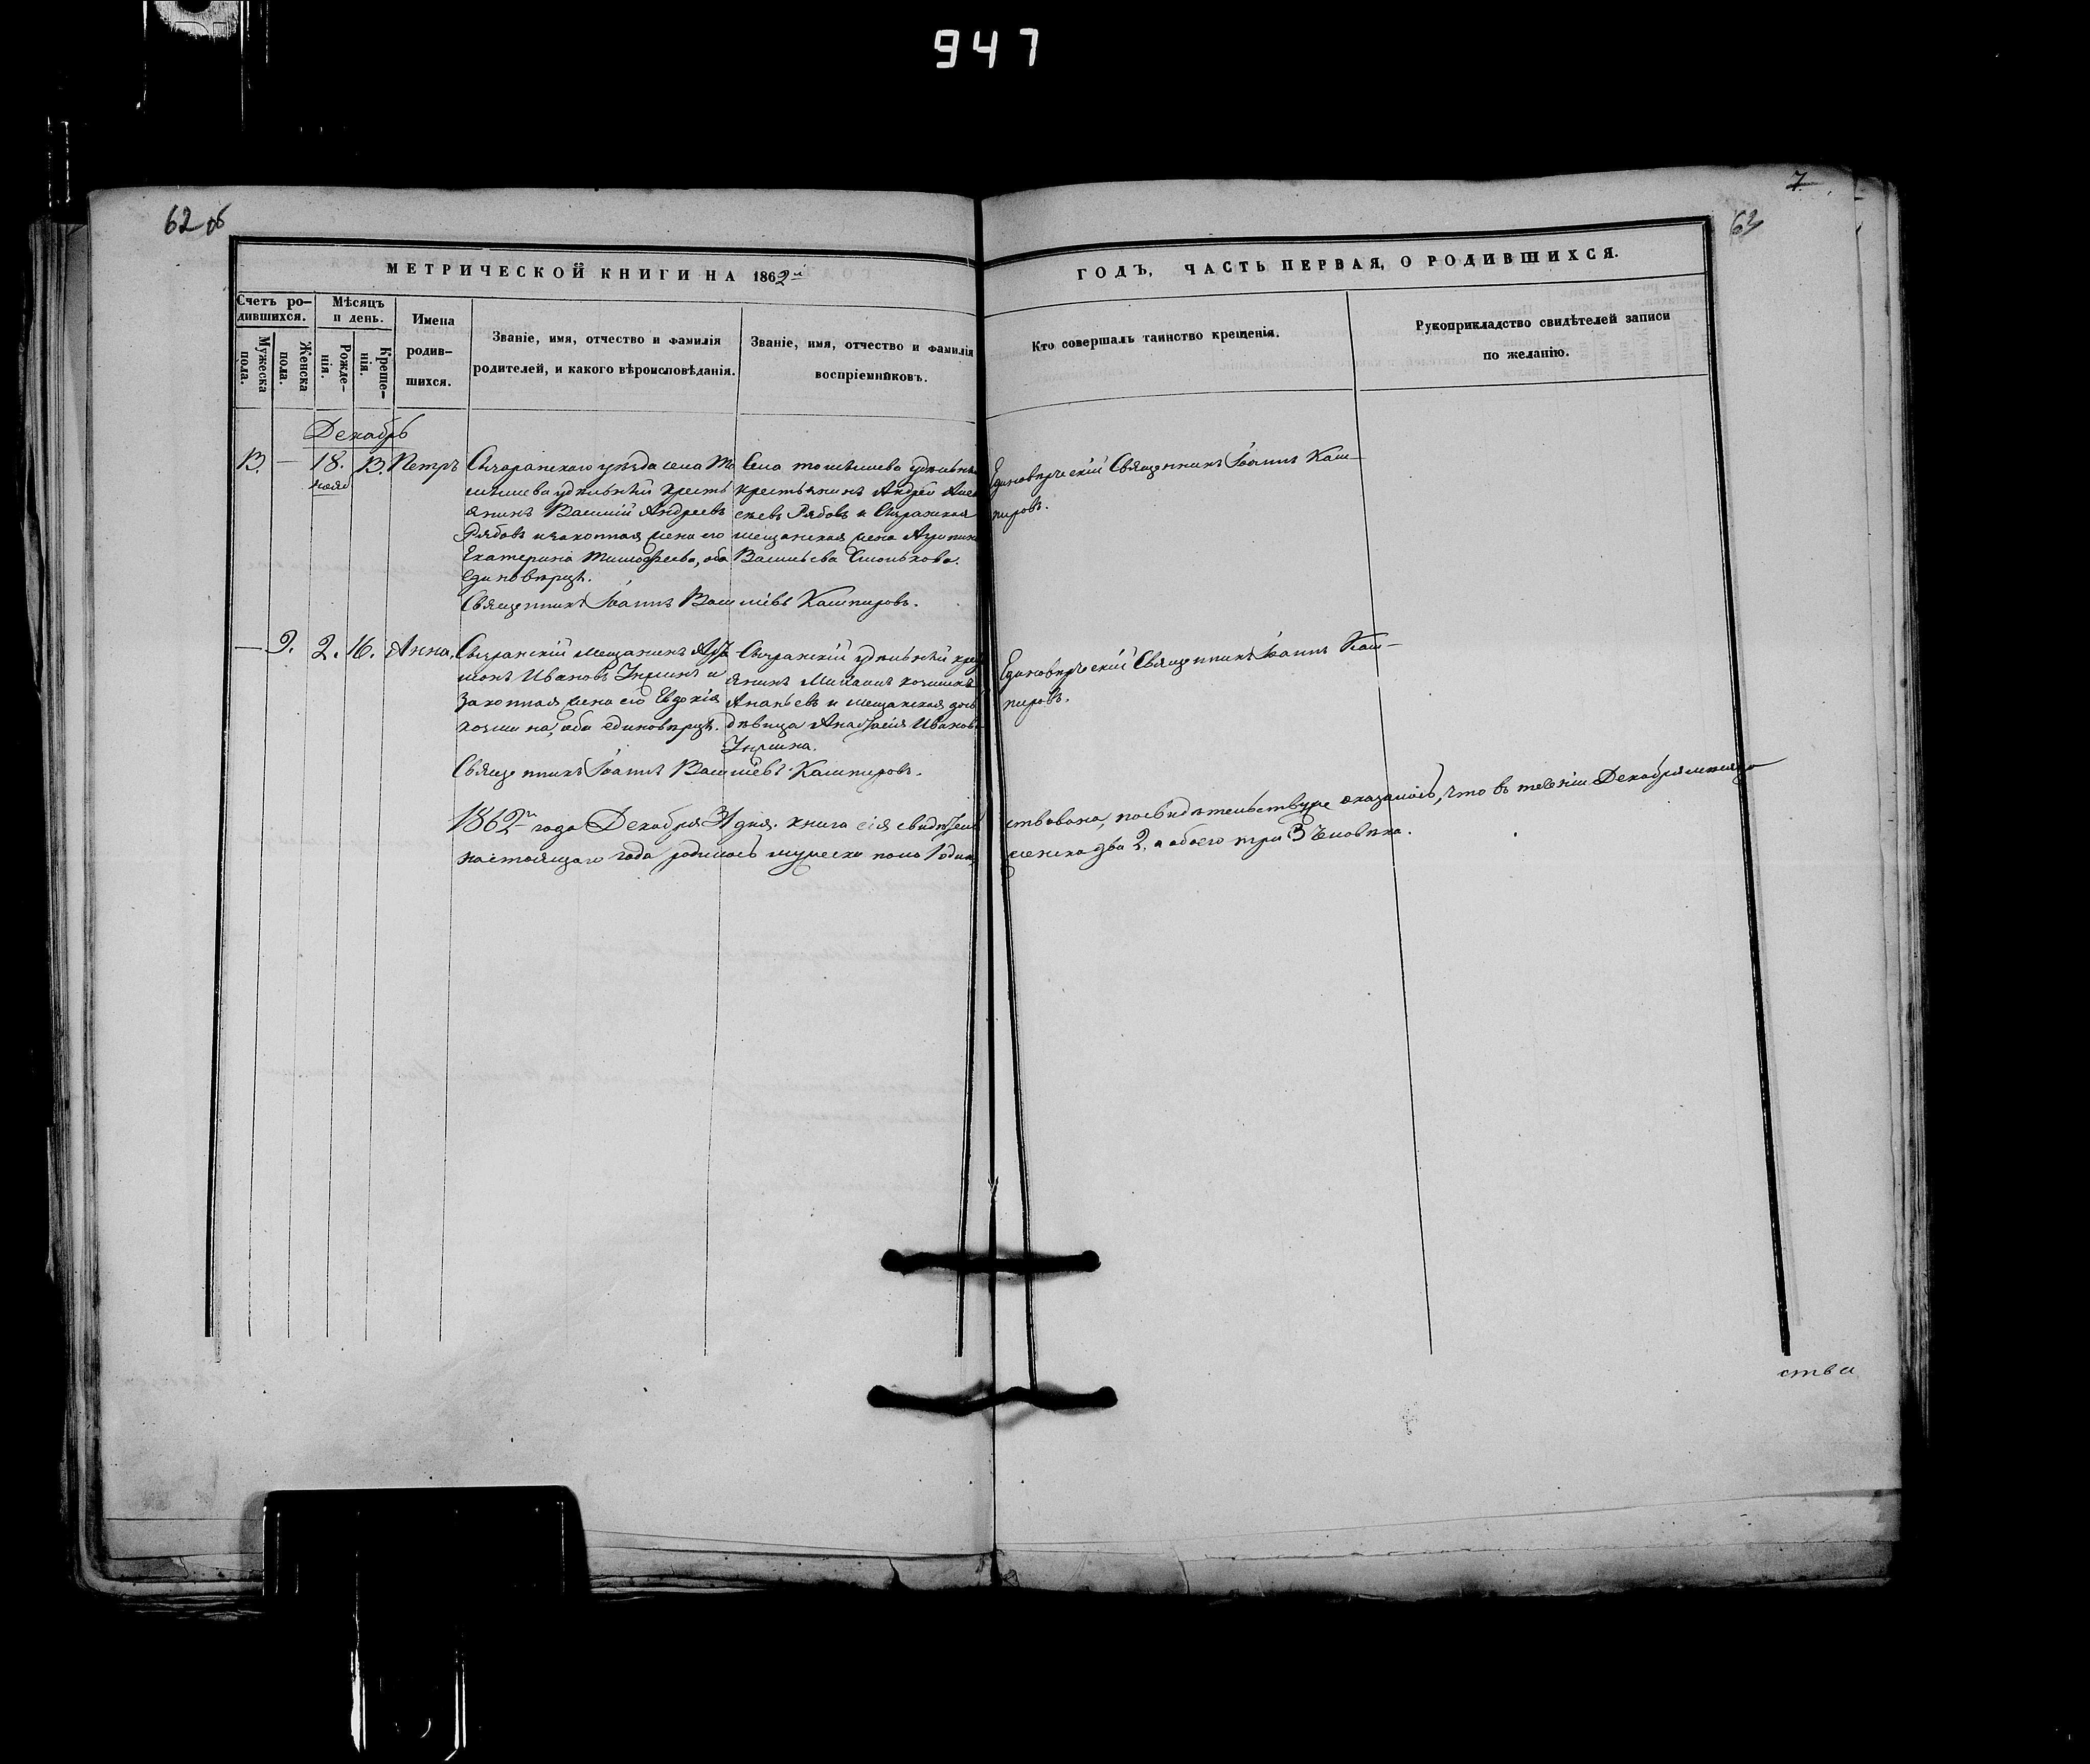 947
62 об
7
63
МЕТРИЧЕСКОЙ КНИГИ НА 1862й
ГОДЪ, ЧАСТЬ ПЕРВАЯ, О РОДИВШИХСЯ.
Счетъ ро-
дившихся.
Мужеска
пола.
Женска
пола.
Мѣсяцъ
и день.
Рожде-
нія.
Креще-
нія.
Имена
родив-
шихся.
Званіе, имя, отчество и фамилія
родителей, и какого вѣроисповѣданія.
Званіе, имя, отчество и фамилія
воспріемниковъ.
Кто совершалъ таинство крещенія.
Рукоприкладство свидѣтелей записи
по желанію.
Декабрь
В. — 18. В. Петръ
Сызранскаго уѣзда села
удѣльный кресть
янинъ Василій Андреевъ
Рябовъ и законная жена его
Екатерина Тимофеева, оба
единовѣрцы.
Села удѣльный
крестьянинъ Андрей
Рябовъ и Сызранская
мещанская жена
Васильева
Единоверческій Священникъ Іоаннъ Каш-
пировъ.
Священникъ Іоаннъ Васильевъ Кашпировъ.
— 9. 2. 16. Анна,
Сызранскій мещанинъ
Ивановъ и
законная жена его Евдокія
оба единовѣрцы.
Сызранскій удѣльный
янинъ Михаилъ
Ананьевъ и мещанская дочь
дѣвица Анастасія Иванова
Единоверческій Священникъ Іоаннъ Каш-
пировъ.
Священникъ Іоаннъ Васильевъ Кашпировъ.
1862го года Декабря 31 дня. книга сія свидѣтель ствована, по свидѣтельству же оказалось, что въ теченіи Декабря месяца
настоящаго года родилось мужеска пола 1 одинъ, женска два 2, а обоего три 3 человѣка.
ства